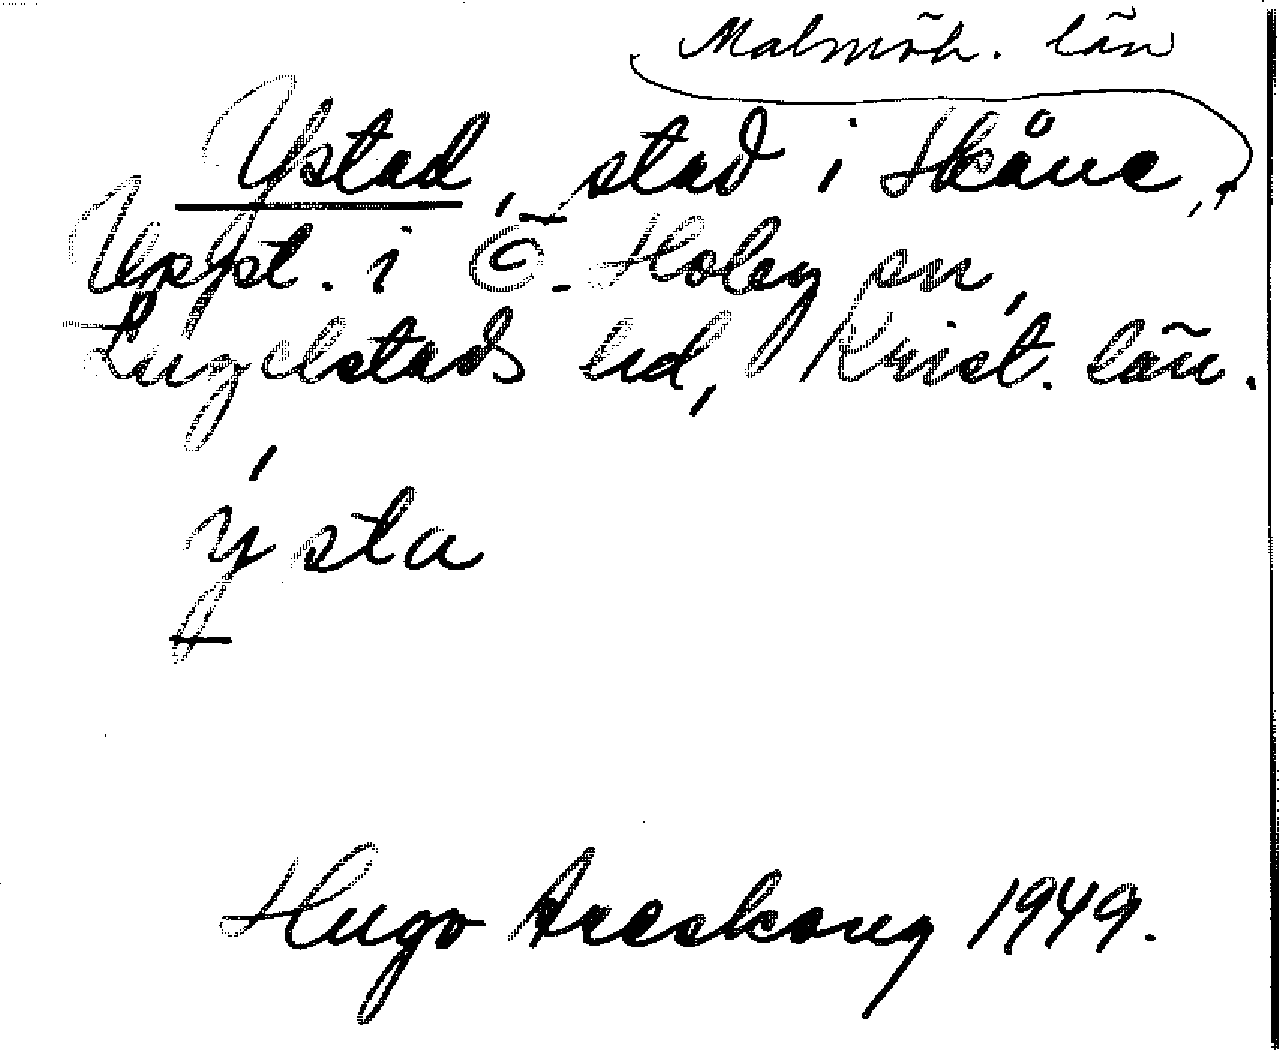 Malmöh. län
Ystad, stad i Skåne,
Uppt. i Ö. Hoby sn,
Ingelstads hd, Krist. län.
ý sta
Hugo Areskoug 1949.